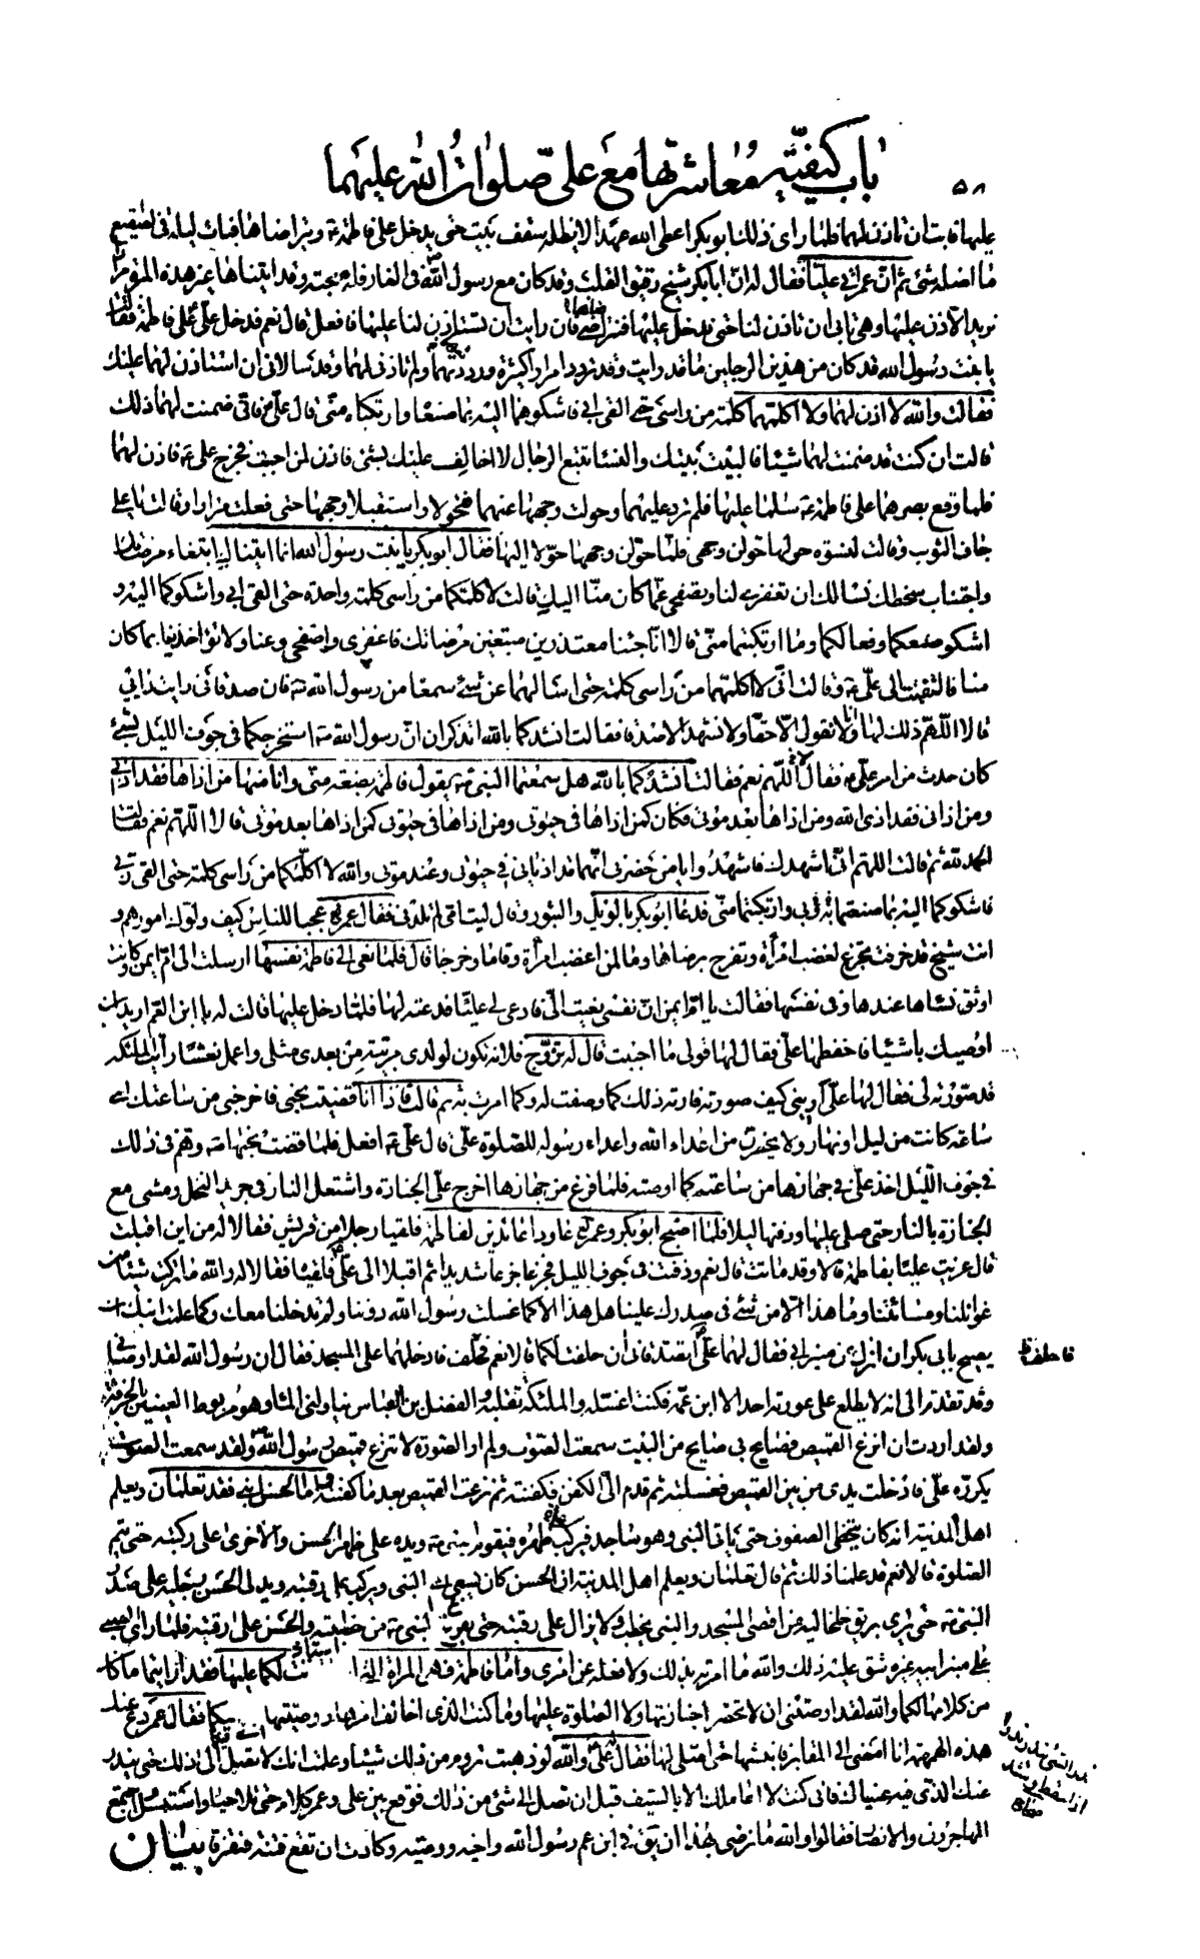 باب كيفيّة معاشرتها مع علىّ صلوات الله عليهما
٥٨
عليها فابت ان تاذن لهما فلما راى ذلك ابو بكر اعطى الله عهدا لا يظله سقف بيت حتى يدخل على فاطمة ع ويتراضاها فبات ليلة فى البقيع
ما اظله شئ ثم ان عمر اتى عليّا فقال له ان ابا بكر شيخ رقيق القلب وقد كان مع رسول الله ص فى الغار فله صحبته وقد اتيناها غير هذه المرة مرارا
نريد الاذن عليها وهى تابى ان تاذن لنا حتى ندخل عليها فنتراضى فان رايت ان تستاذن لنا عليها فافعل قال نعم فدخل على على فاطمة فقال
يا بنت رسول الله قد كان من هذين الرجلين ما قد رايت وقد تردد امرارا كثيرة ورددتهما ولم تاذنى لهما وقد سالانى ان استاذن لهما عليك
فقالت والله لا اذن لهما ولا اكلمهما كلمة من راسى حتى القى ابى فاشكوهما اليه بما صنعا وارتكباه منّى قال علىّ فانى ضمنت لهما ذلك
قالت ان كنت قد ضمنت لهما شيئا فالبيت بيتك والنساء تتبع الرجال لا اخالف عليك بشئ فاذن لمن احببت فخرج على ع فاذن لهما
فلما وقع بصرهما على فاطمة ع سلما عليها فلم ترد عليهما وحولت وجهها عنهما فتحولا واستقبلا وجهها حتى فعلت مرارا وقالت يا على
جاف الثوب وقالت لنسوة حولها حولن وجهى فلما حولن وجهها حوّلا اليها فقال ابو بكر يا بنت رسول الله انما اتيناك ابتغاء مرضاتك
واجتناب سخطك نسالك ان تغفرى لنا وتصفحى عما كان منّا اليك قالت لا اكلمكما من راسى كلمة واحدة حتى القى ابى واشكوكما اليه و
اشكو صنعكما وفعالكما وما ارتكبتما منّى قالا انّا جئنا معتذرين مبتغين مرضاتك فاغفرى واصفحى عنا ولا تؤاخذينا بما كان
منا فالتفتت الى علىّ ع وقالت انّى لا اكلمهما من راسى كلمة حتى اسالهما عن شئ سمعا من رسول الله ص فان صدقانى رايت رايى
قالا اللهم ذلك لها وانا لا نقول الّا حقا ولا نشهد الا صدقا فقالت انشدكما بالله اتذكران ان رسول الله ص استخرجكما فى جوف الليل لشئ
كان حدث من امر علىّ ع فقالا اللهم نعم فقالت انشدكما بالله هل سمعتما النبى ص يقول فاطمة بضعة منّى وانا منها من اذاها فقد اذانى
ومن اذانى فقد اذى الله ومن اذاها بعد موتى فكان كمن اذاها فى حيوتى ومن اذاها فى حيوتى كمن اذاها بعد موتى قالا اللهم نعم فقالت
الحمد لله ثم قالت اللهم انّى اشهدك فاشهدوا يا من حضرنى انهما قد اذيانى فى حيوتى وعند موتى والله لا اكلمكما من راسى كلمة حتى القى ربى
فاشكوكما اليه بما صنعتما به وبى وارتكبتما منّى فدعا ابو بكر بالويل والثبور وقال ليت امّى لم تلدنى فقال عمر عجبا للناس كيف ولوك امورهم و
انت شيخ قد خرفت تجزع لغضب امرأة وتفرح برضاها وما لمن اغضب امرأة وقاما وخرجا قال فلما نعى الى فاطمة نفسها ارسلت الى ام ايمن وكانت
اوثق نسائها عندها وفى نفسها فقالت يا ام ايمن ان نفسى نعيت الىّ فادعى لى عليّا فدعته لها فلما دخل عليها قالت له يا ابن العم اريد ان
اوصيك باشياء فاحفظها علىّ فقال لها قولى ما احببت قالت له تزوّج فلانة تكون لولدى مربية من بعدى مثلى واعمل نعشا رايت الملئكة
قد صورته لى فقال لها علىّ ارينى كيف صورته فارته ذلك كما وصفت له وكما امرت به ثم قالت فاذا انا قضيت نحبى فاخرجنى من ساعتك اى
ساعة كانت من ليل او نهار ولا يحضرن من اعداء الله واعداء رسوله للصلوة علىّ قال علىّ ع افعل فلما قضت نحبها ص وهم فى ذلك
فى جوف الليل اخذ علىّ فى جهازها من ساعته كما اوصته فلما فرغ من جهازها اخرج علىّ الجنازة واشتعل النار فى جريد النخل ومشى مع
الجنازة بالنار حتى صلى عليها ودفنها ليلا فلما اصبح ابو بكر وعمر عاودا عائدين لفاطمة فلقيا رجلا من قريش فقالا له من اين اقبلت
قال عزيت عليّا بفاطمة قالا وقد ماتت قال نعم ودفنت فى جوف الليل فجزعا جزعا شديدا ثم اقبلا الى علىّ ع فلقياه فقالا له والله ما تركت شيئا من
غوائلنا ومساءتنا وما هذا الّا من شئ فى صدرك علينا هل هذا الا كما غسلت رسول الله دوننا ولم تدخلنا معك وكما علمت ابنك ان
يصيح بابى بكر ان انزل عن منبر ابى فقال لهما علىّ اتصدقانى ان حلفت لكما قالا نعم فحلف فادخلهما على المسجد فقال ان رسول الله لقد اوصانى
وقد تقدم الى انه لا يطلع على عورته احد الا ابن عمه فكنت اغسله والملئكة تقلبه والفضل بن العباس يناولنى الماء وهو مربوط العينين بالخرقة
ولقد اردت ان انزع القميص فصاح بى صائح من البيت سمعت الصوت ولم ار الصورة لا تنزع قميص رسول الله ولقد سمعت الصوت
يكرره علىّ فادخلت يدى من بين القميص فغسلته ثم قدم الىّ الكفن فكفنته ثم نزعت القميص بعد ما كفنته واما الحسن ابنى فقد تعلمان ويعلم
اهل المدينة انه كان يتخطى الصفوف حتى ياتى النبى وهو ساجد فيركب ظهره فيقوم النبى ص ويده على ظهر الحسن والاخرى على ركبته حتى يتم
الصلوة قالا نعم قد علمنا ذلك ثم قال تعلمان ويعلم اهل المدينة ان الحسن كان يسعى الى النبى ويركب على رقبته ويدلى الحسن رجليه على صدر
النبى ص حتى يرى بريق خلخاليه من اقصى المسجد والنبى يخطب ولا يزال على رقبته حتى يفرغ النبى ص من خطبته والحسن على رقبته فلما راى الصبى
على منبر ابيه غيره شق عليه ذلك والله ما امرته بذلك ولا فعله عن امرى واما فاطمة فهى المراة التى استاذنت لكما عليها فقد رايتما ما كان
من كلامها لكما والله لقد اوصتنى ان لا تحضرا جنازتها ولا الصلوة عليها وما كنت الذى اخالف امرها ووصيتها فيكما فقال عمر دع عنك
هذه الهمهمة انا امضى الى المقابر فانبشها حتى اصلى عليها فقال له علىّ والله لو ذهبت تروم من ذلك شيئا وعلمت انك لا تصل الى ذلك حتى يندر
عنك الذى فيه عيناك فانى كنت لا اعاملك الا بالسيف قبل ان تصل الى شئ من ذلك فوقع بين على وعمر كلام حتى تلاحيا واستبسل واجتمع
المهاجرون والانصار فقالوا والله ما نرضى بهذا ان يقال فى ابن عم رسول الله واخيه ووصيه وكادت ان تقع فتنة فتفرقا بيان
فاحلف
ندر الشئ يندر ندرا
اذا سقط وشذ
صحاح